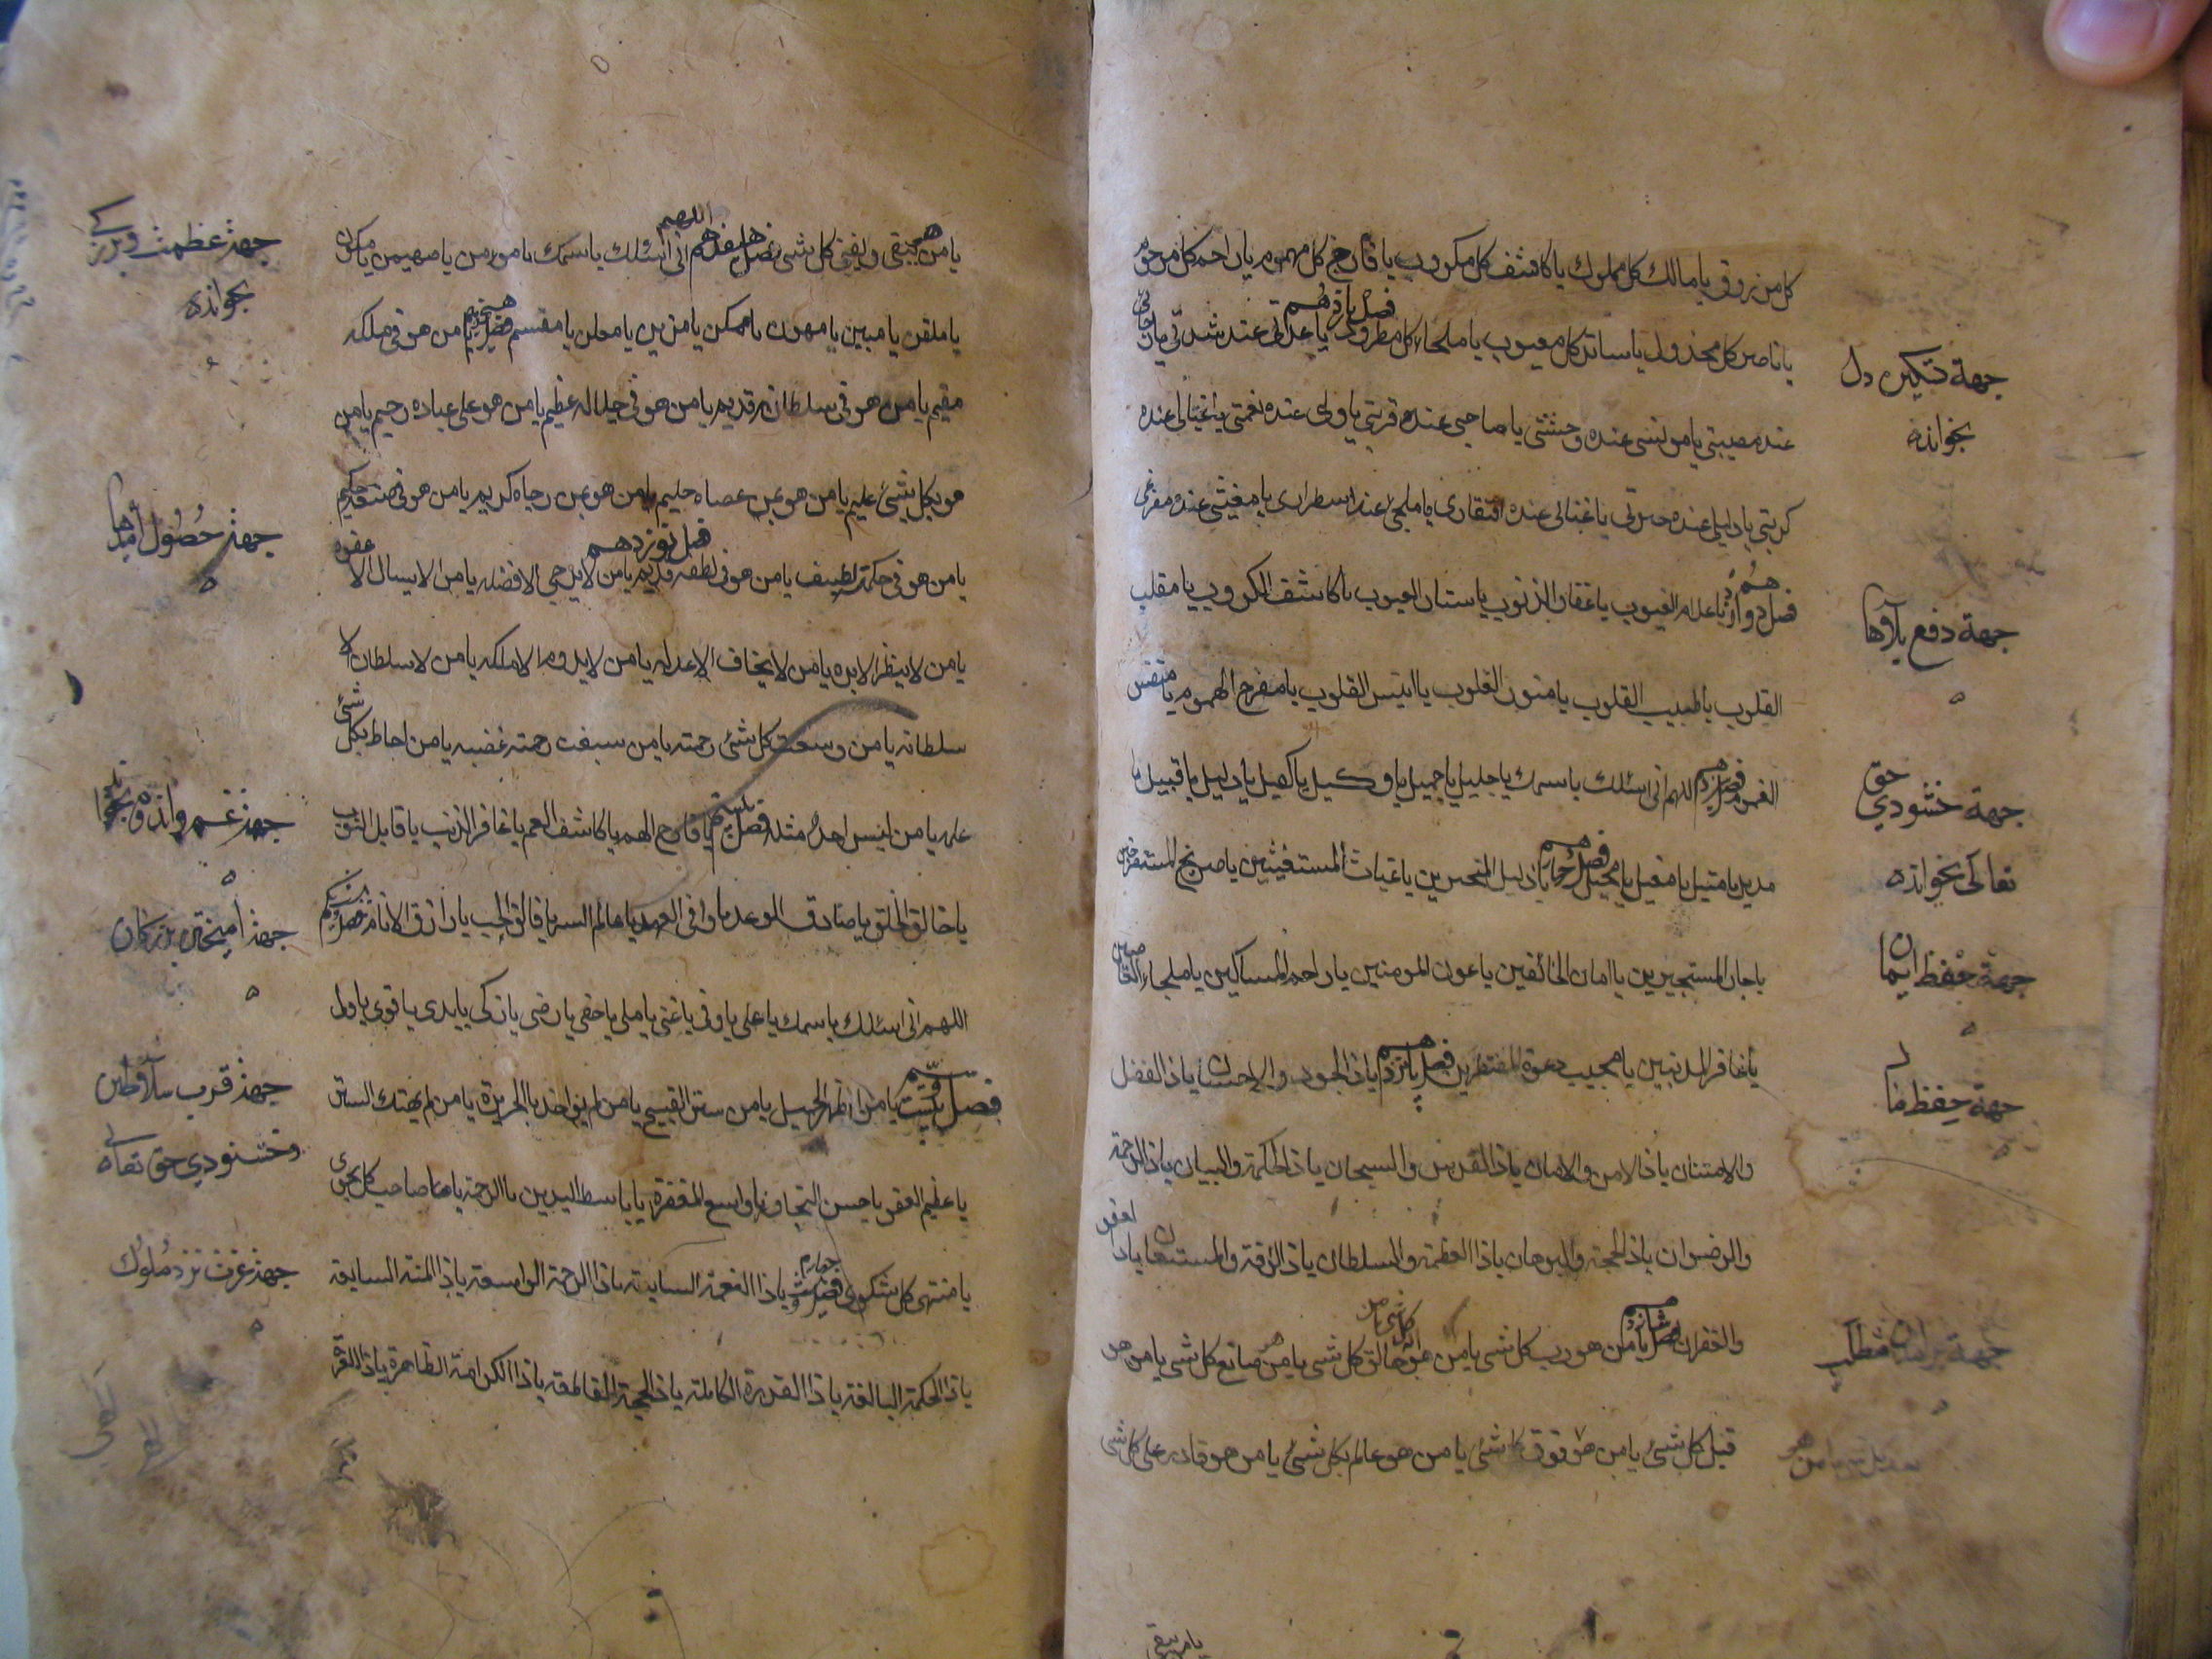 كل مرزوق يا مالك كل مملوك يا كاشف كل مكروب يا فارج كل مهموم يا راحم كل مرحوم
يا ناصر كل مخذول يا ساتر كل معيوب يا ملجاء كل مطرود فصل يازدهم يا عدتى عند شدتى يا رجائى
عند مصيبتي يا مونسى عند وحشتى يا صاحبى عند غربتي يا وليى عند نعمتى يا غياثى عند
كربتي يا دليلى عند حيرتى يا غنائى عند افتقارى يا ملجئ عند اسطرارى يا مغيثى عند مفزعى
فصل دوازدهم يا علام الغيوب يا غفار الذنوب يا ستار العيوب يا كاشف الكروب يا مقلب
القلوب يا طبيب القلوب يا منور القلوب يا انيس القلوب يا مفرج الهموم يا منفس
الغموم فصل سيزدهم اللهم انى اسئلك باسمك يا جليل يا جميل يا وكيل يا كفيل يا دليل يا قبيل يا
مديل يا منيل يا مقيل يا محيل فصل چهاردهم يا دليل المتحيرين يا غياث المستغيثين يا صريخ المستصرخين
يا جار المستجيرين يا امان الخائفين يا عون المومنين يا راحم المساكين يا ملجاء العاصين
يا غافر المذنبين يا مجيب دعوة المضطرين فصل پانزدهم يا ذا الجود والاحسان يا ذا الفضل
والامتنان يا ذا الامن والامان يا ذا القدس والسبحان يا ذا الحكمة والبيان يا ذا الرحمة
والرضوان يا ذا الحجة والبرهان يا ذا العظمة والسلطان يا ذا الرافة والمستعان يا ذا العفو
والغفران فصل شانزدهم يا من هو رب كل شى يا من هو اله كل شى يا من هو خالق كل شى يا من هو صانع كل شى يا من هو
قبل كل شئ يا من هو فوق كل شئ يا من هو عالم بكل شئ يا من هو قادر على كل شى
جهة تسكين دل
بخواند
جهة دفع بلاوها
جهة خشنودي حق
تعالى بخواند
جهة حفظ ايمان
جهة حفظ مال
جهة بر امدن مطلب
يا من يبقى
يا من هو يبقى ويفنى كل شى فصل هفدهم اللهم انى اسئلك باسمك يا مومن يا مهيمن يا مكون
يا ملقن يا مبين يا مهون يا ممكن يا مزين يا معلن يا مقسم فصل هيجدهم يا من هو فى ملكه
مقيم يا من هو فى سلطانه قديم يا من هو فى جلاله عظيم يا من هو على عباده رحيم يا من
هو بكل شئ عليم يا من هو بمن عصاه حليم يا من هو بمن رجاه كريم يا من هو فى صنعه حكيم
يا من هو فى حكمته لطيف يا من هو فى لطفه قديم فصل نوزدهم يا من لا يرجى الا فضله يا من لا يسال الا عفوه
يا من لا ينظر الا بره يا من لا يخاف الا عدله يا من لا يدوم الا ملكه يا من لا سلطان الا
سلطانه يا من وسعت كل شئ رحمته يا من سبقت رحمته غضبه يا من احاط بكل شئ
علمه يا من ليس احد مثله فصل بيستم يا فارج الهم يا كاشف الغم يا غافر الذنب يا قابل التوب
يا خالق الخلق يا صادق الوعد يا وافى العهد يا عالم السر يا فالق الحب يا رازق الانام
اللهم انى اسئلك باسمك يا على يا وفى يا غنى يا ملى يا حفى يا رضى يا زكى يا بدى يا قوى يا ولى
فصل يا من اظهر الجميل يا من ستر القبيح يا من لم يؤاخذ بالجريرة يا من لم يهتك الستر
يا عظيم العفو يا حسن التجاوز يا واسع المغفرة يا باسط اليدين بالرحمة يا صاحب كل نجوى
يا منتهى كل شكوى يا ذا النعمة السابغة يا ذا الرحمة الواسعة يا ذا المنة السابقة
يا ذا الحكمة البالغة يا ذا القدرة الكاملة يا ذا الحجة القاطعة يا ذا الكرامة الظاهرة يا ذا العزة
جهة عظمت وبزرگى
بخواند
جهة حصول اميدها
جهة غم واندوه بخواند
جهة اميختن بزركان
جهة قرب سلاطين
وخشنودي حق تعالى
جهة عزت نزد ملوك